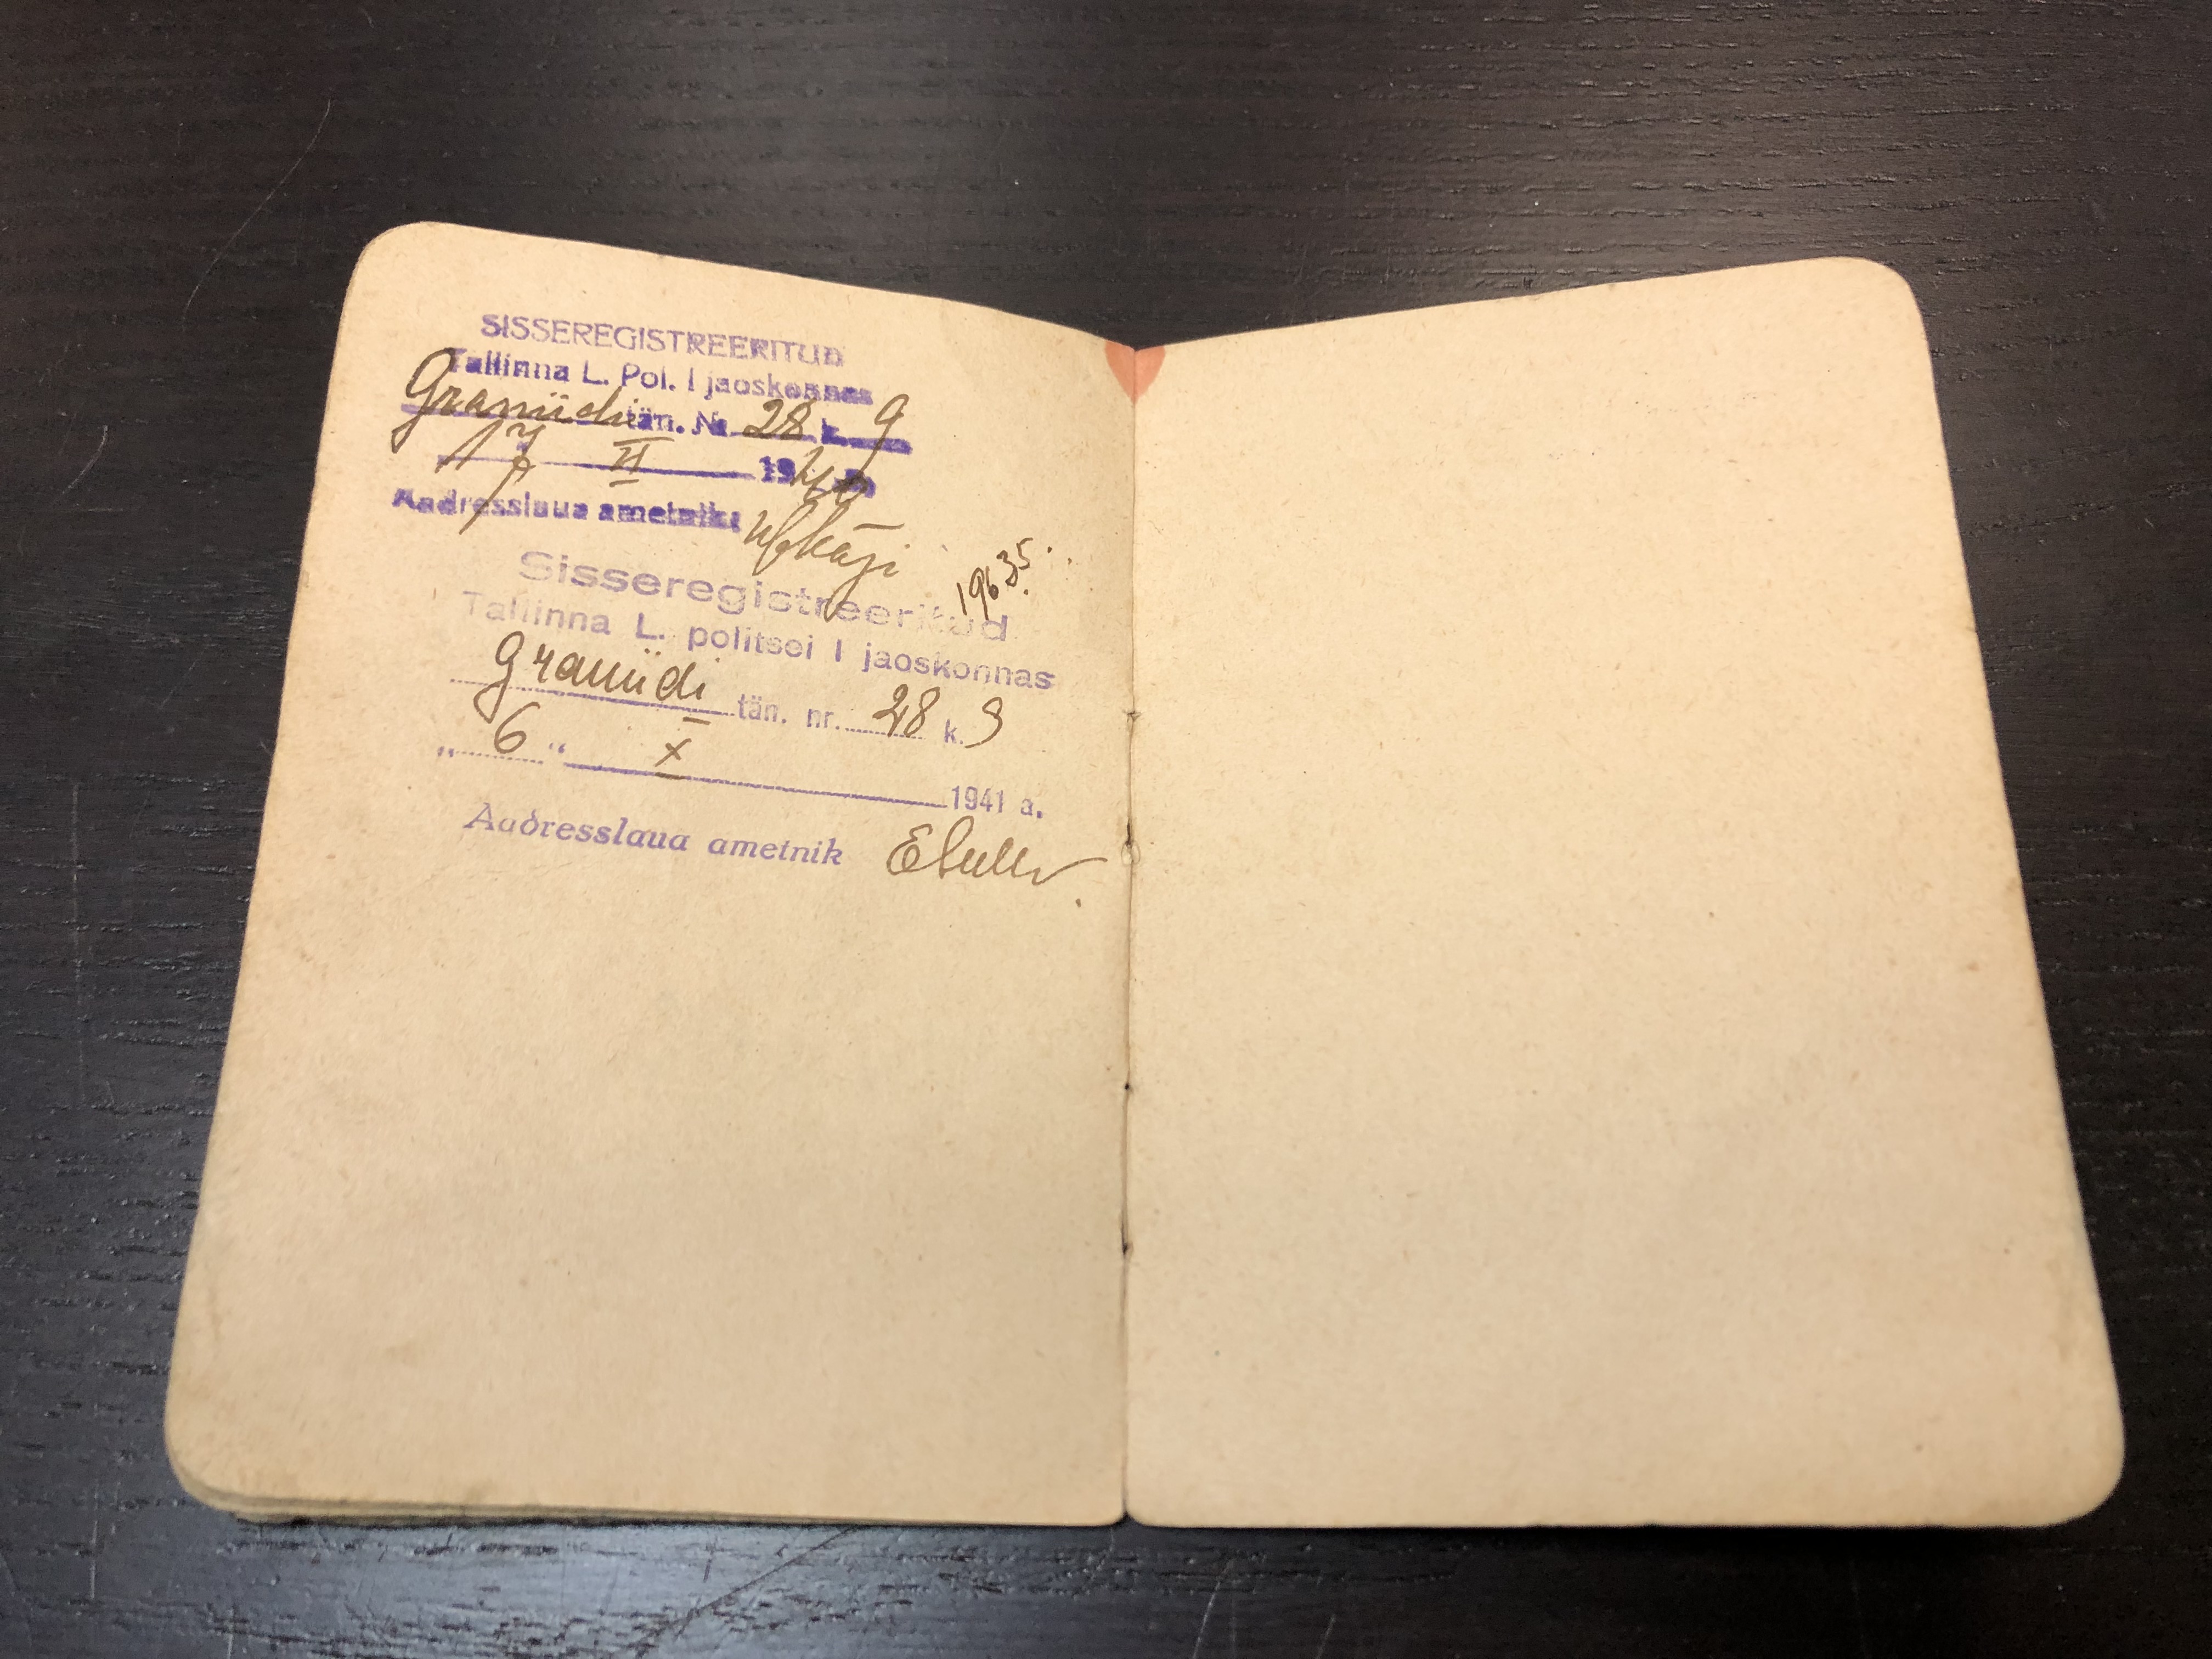 SISSEREGISTREERITUD
Tallinna L. Pol. I jaoskonnas
Graniidi tän. № 28 k. 9
17 II 1940 a
Aadresslaua ametnik:
19635.
Sisseregistreeritud
Tallinna L. politsei I jaoskonnas
Graniidi tän. nr. 28 k. 9
„ 6 “ X 1941 a.
Aadresslaua ametnik